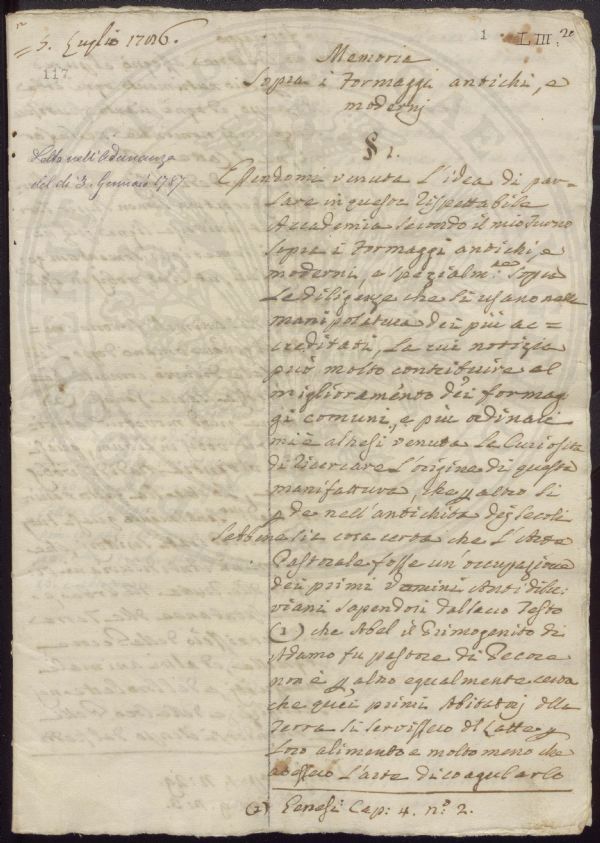 5. Luglio 1786.
1 LIII: 20
117
Memoria
Sopra i Formaggi antichi, e
moderni
§ 1.
Letta nell'Adunanza
del dì 3. Gennaio 1787
Essendomi venuta l'idea di par=
lare in questa rispettabile
Accademia secondo il mio turno
sopra i Formaggi antichi, e
moderni, e spezialm.te sopra
le diligenze che si usano nella
manipolatura dei più ac=
creditati, la cui notizia
può molto contribuire al
miglioramento dei formag
gi comuni, e più ordinari
mi è altresì venuta la Curiosità
di ricercare l'origine di questa
manifattura, che p altro si
p de nell'antichità dei secoli
Sebbene sia cosa certa che l'Arte
Pastorale fosse un'occupazione
dei primi Uomini Antidilu
viani sapendosi dal sacro Testo
(1) che Abel il Primogenito di
Adamo fu pastore di Pecore
non è p altro egualmente certo
che quei primi Abitatori della
Terra si servissero del Latte p
loro alimento e molto meno che
avessero l'arte di coagularlo
(1) Genesi Cap: 4. n.o 2.